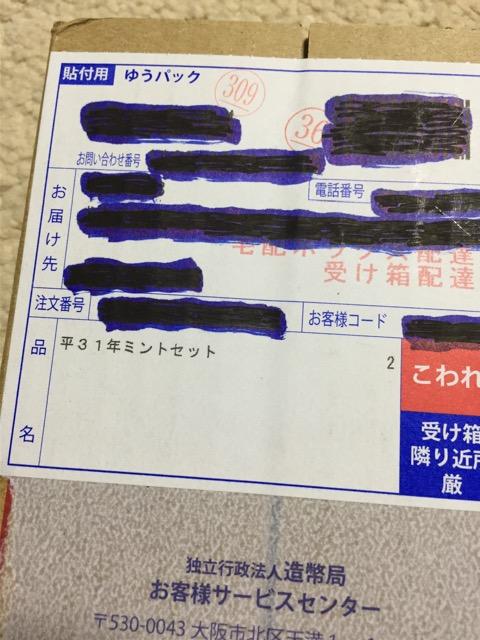 貼付用 ゆうパック
309
36
お問い合わせ番号
電話番号
お届け先
宅配ボックス配達
受け箱配達
注文番号
お客様コード
品名
平31年ミントセット 2
こわれ
受け箱
隣り近所
厳
独立行政法人造幣局
お客様サービスセンター
〒530-0043 大阪市北区天満1